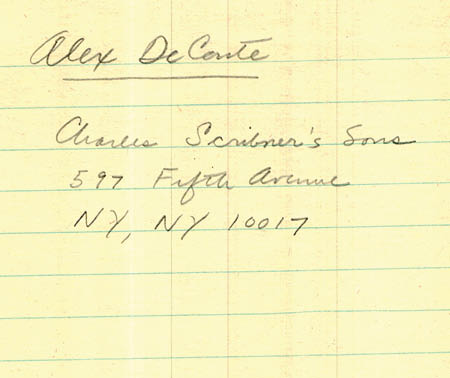 Alex DeConte
Charles Scribner's Sons
597 Fifth Avenue
NY, NY 10017